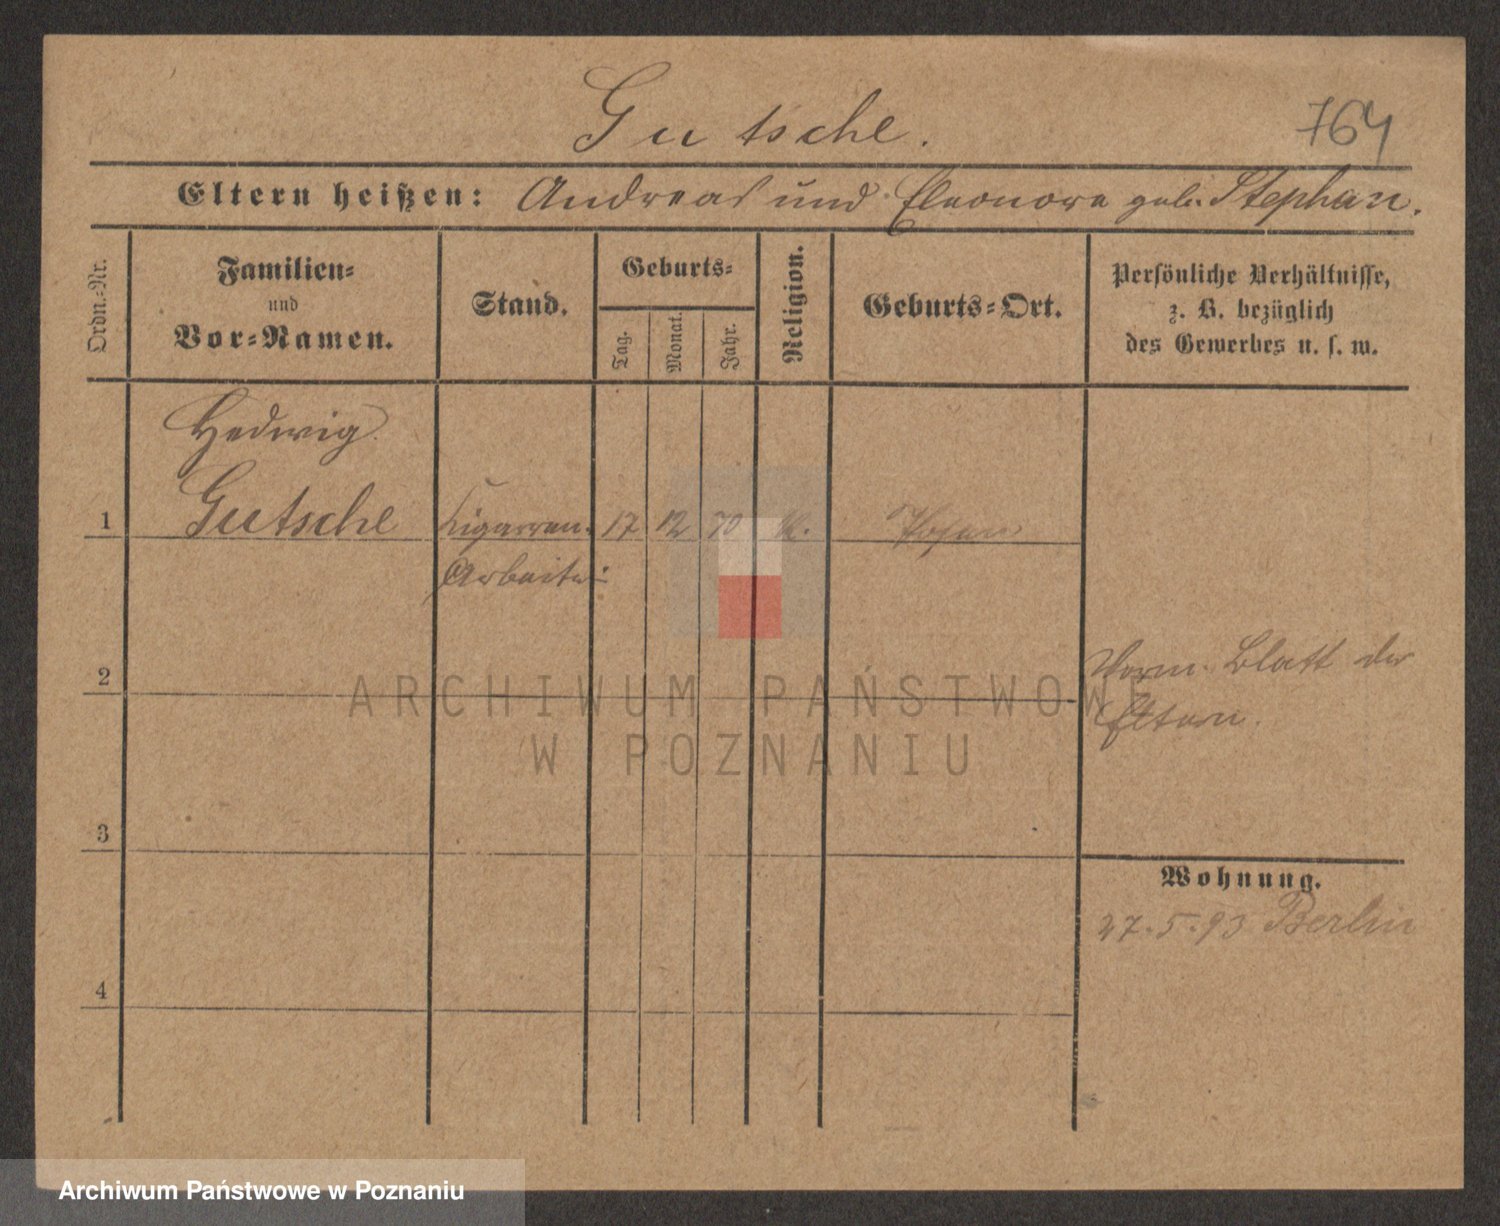 Gutsche.
764
Eltern heißen: Andreas und Eleonore geb. Stephan.
Ordn.-Nr.
Familien-
und
Vor-Namen.
Stand.
Geburts-
Tag.
Monat.
Jahr.
Religion.
Geburts-Ort.
Persönliche Verhältnisse,
z. B. bezüglich
des Gewerbes u. s. w.
Hedwig
1 Gutsche Cigarren- 17 12 70 k. Posen
Arbeiterin
2
Verm. Blatt der
Eltern.
3
Wohnung.
27.5.93 Berlin
4
ARCHIWUM PAŃSTWOWE
W POZNANIU
Archiwum Państwowe w Poznaniu